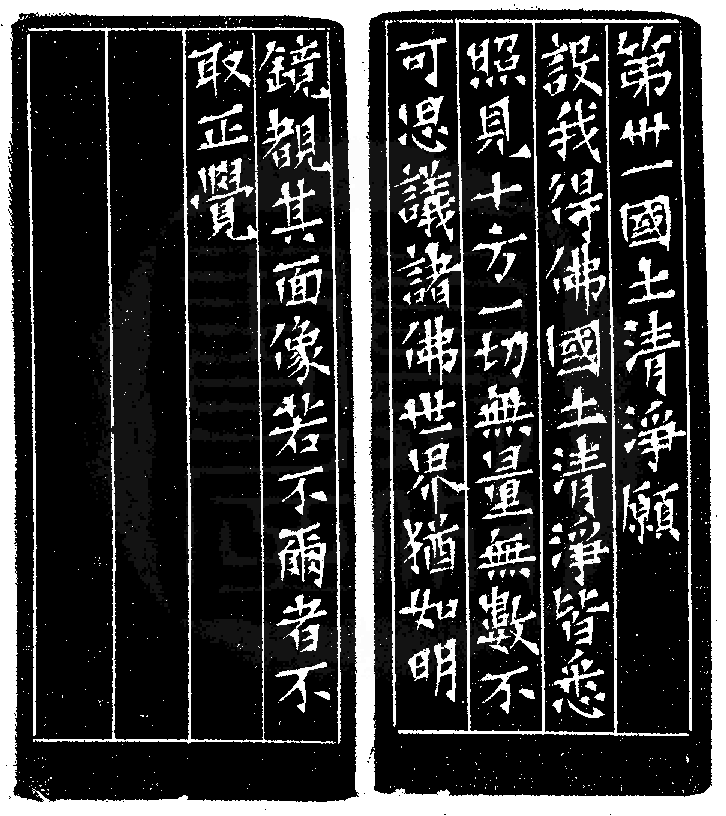 第卅一國土清淨願
設我得佛國土清淨皆悉
照見十方一切無量無數不
可思議諸佛世界猶如明
鏡覩其面像若不爾者不
取正覺